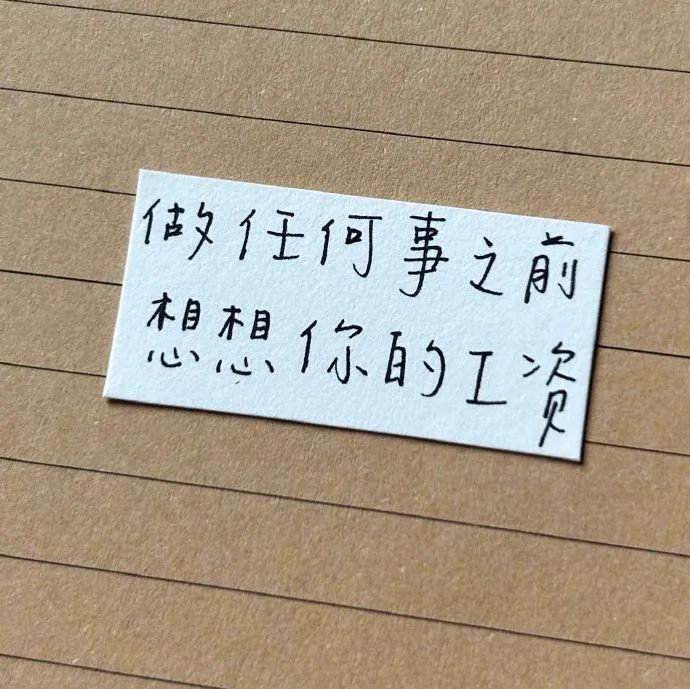 做任何事之前
想想你的工资